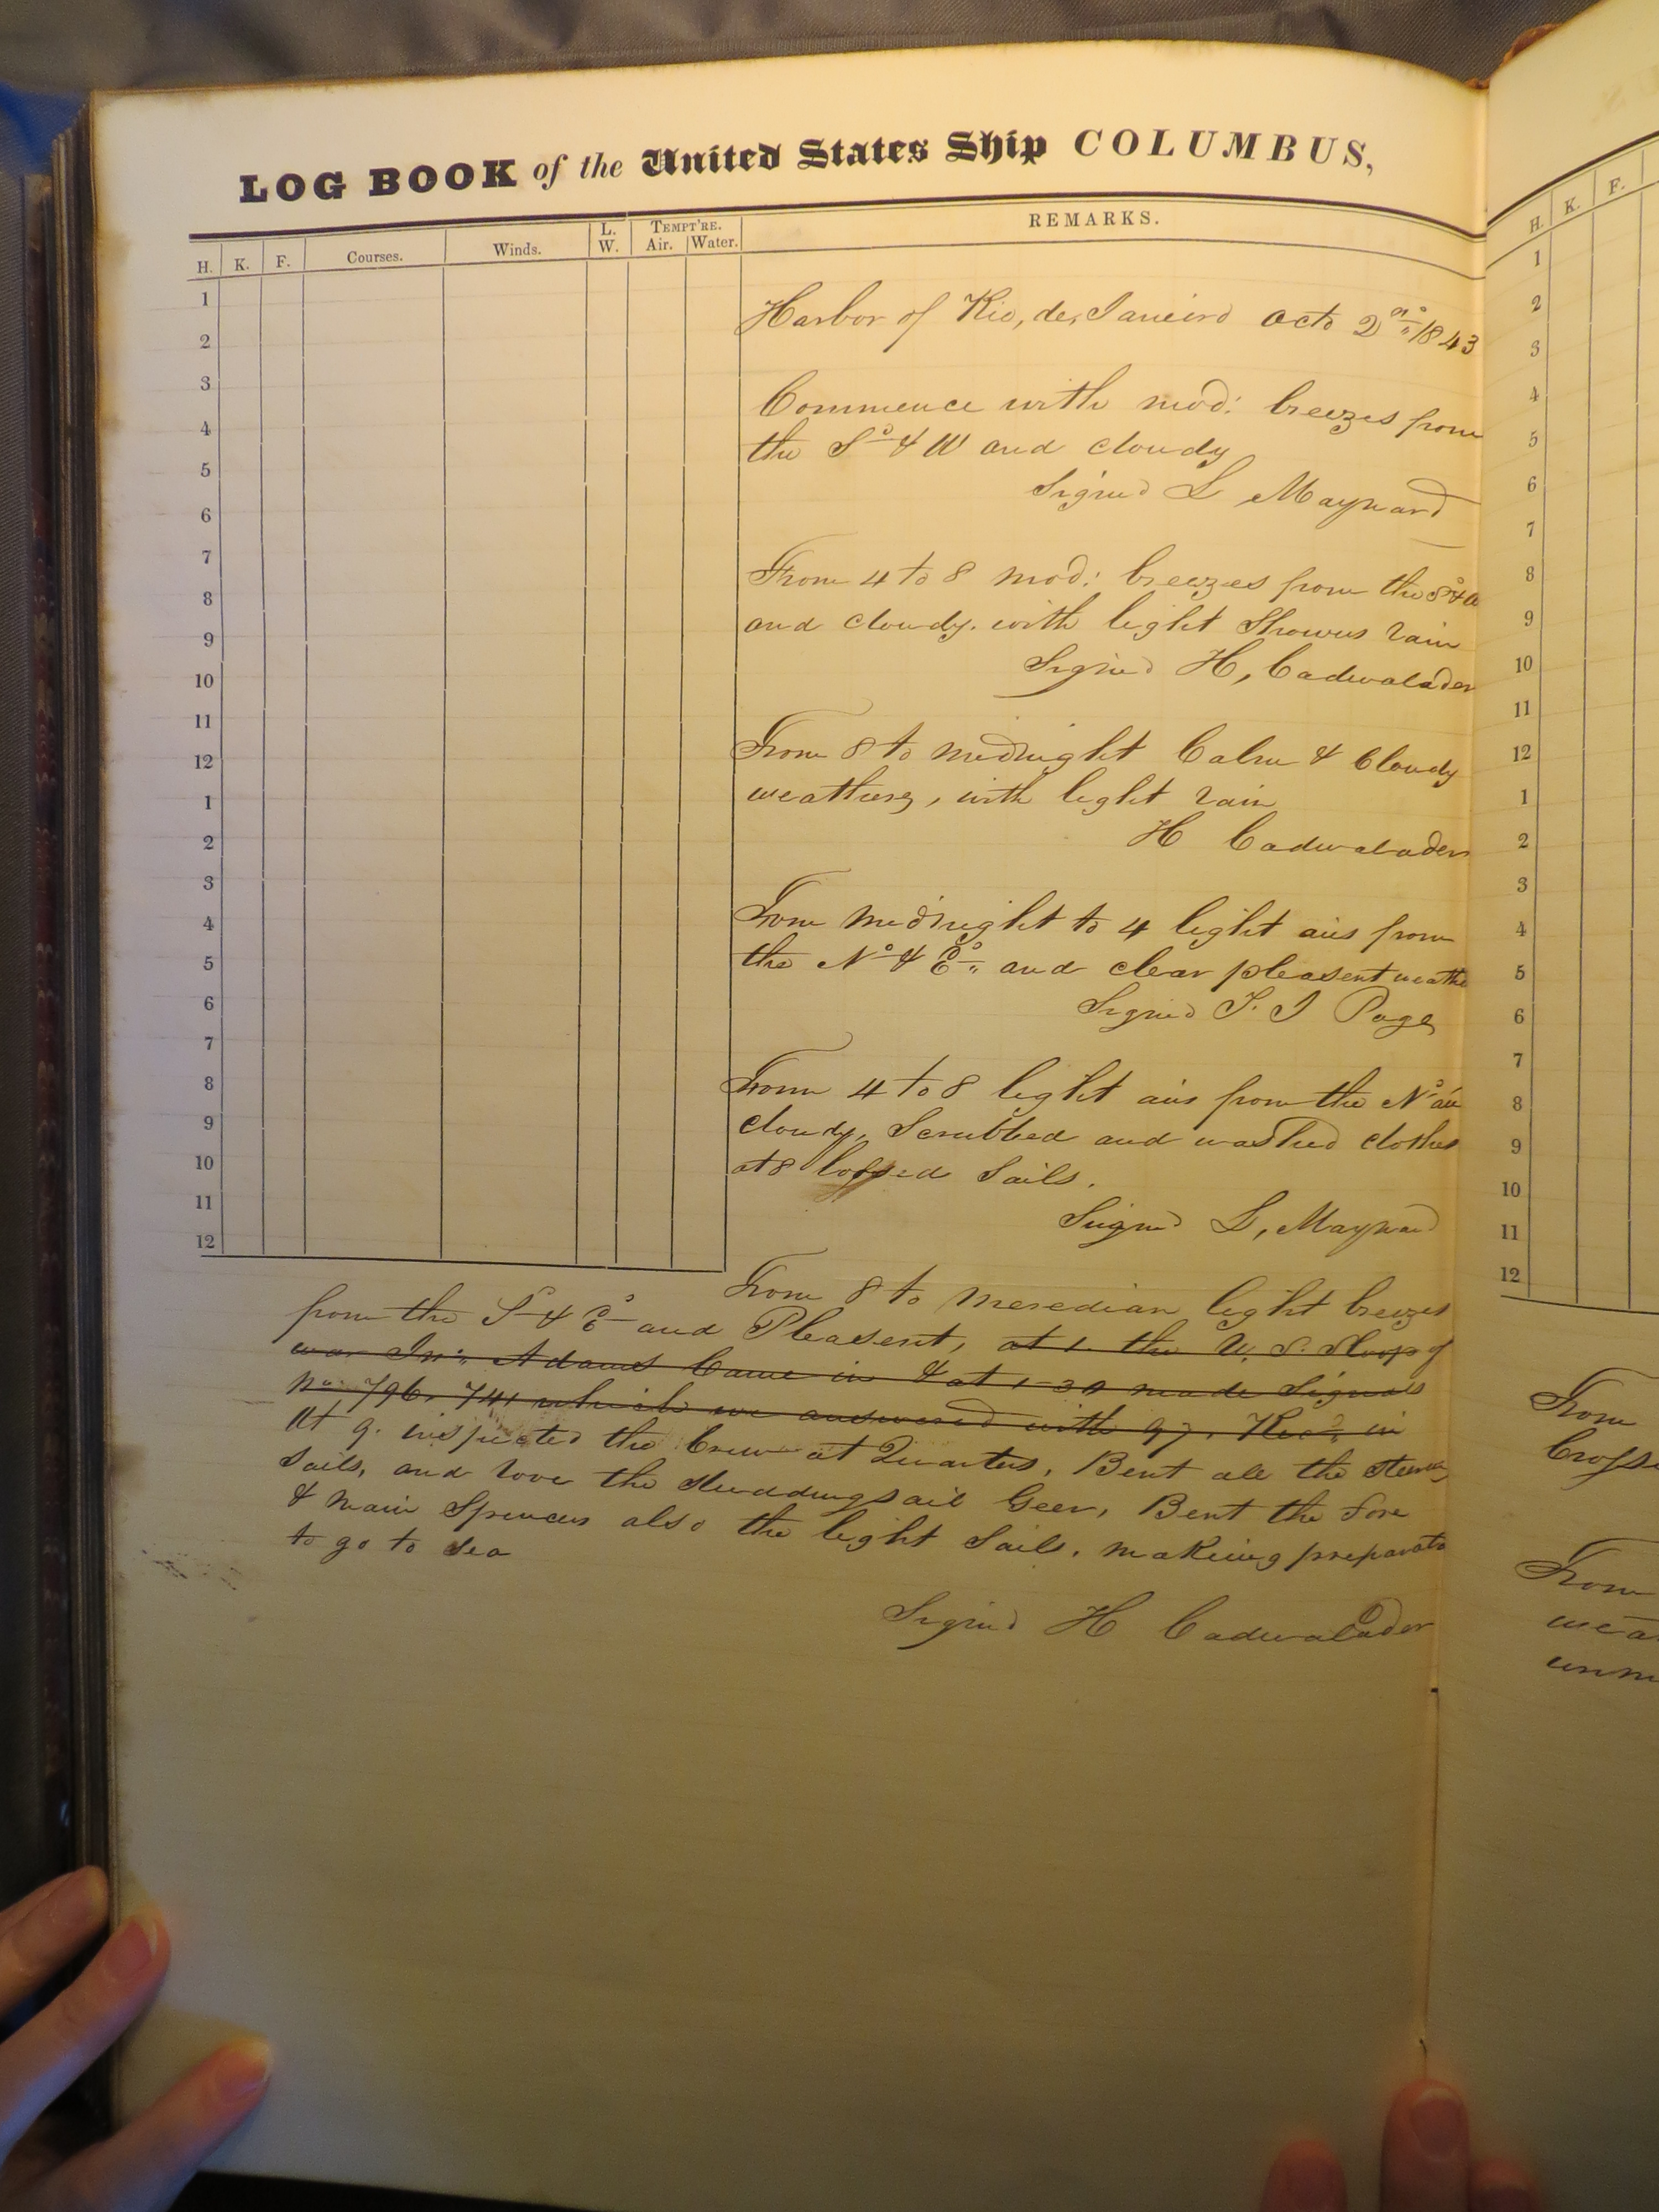 LOG BOOK of the United States Ship COLUMBUS,
H. K. F. Courses. Winds. L. W. TEMPT'RE. Air. Water. REMARKS.
1
2
3
4
5
6
7
8
9
10
11
12
1
2
3
4
5
6
7
8
9
10
11
12
Harbor of Rio, de, Janeiro Octo 2nd 1843
Commence with mod: breezes from
the So & W and cloudy
Signed L Maynard
From 4 to 8 mod: breezes from the So & W
and cloudy. with light Showers rain
Signed H, Cadwalader
From 8 to midnight Calm & Cloudy
weather, with light rain
H Cadwalader
From Midnight to 4 light airs from
the No & Eo and clear pleasent weathe
Signed T. J Page
From 4 to 8 light airs from the No
cloudy, Scrubbed and washed clothes
at 8 loosed Sails.
Signed L, Maynard
From 8 to Meredian light breezes
from the So & Eo and Pleasent, at 1. the U. S. Sloop of
war Jno. Adams Came in & at 1-30 made Signals
No. 796. 741 which we answered with 97. Recd. in
At 9. inspected the Crew at Quarters, Bent all the
Sails, and rove the Studdingsail Geer, Bent the Fore
& Main Spencers also the light Sails, making preparato
to go to Sea
Signed H Cadwalader
H. K. F.
1
2
3
4
5
6
7
8
9
10
11
12
1
2
3
4
5
6
7
8
9
10
11
12
From
From